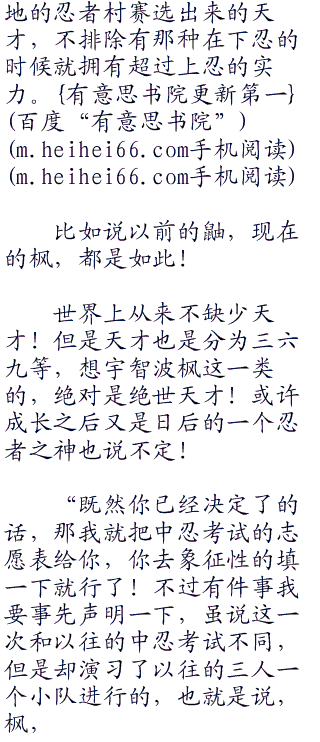 地的忍者村赛选出来的天
才，不排除有那种在下忍的
时候就拥有超过上忍的实
力。{有意思书院更新第一}
(百度“有意思书院”)
(m.heihei66.com手机阅读)
(m.heihei66.com手机阅读)
比如说以前的鼬，现在
的枫，都是如此！
世界上从来不缺少天
才！但是天才也是分为三六
九等，想宇智波枫这一类
的，绝对是绝世天才！或许
成长之后又是日后的一个忍
者之神也说不定！
“既然你已经决定了的
话，那我就把中忍考试的志
愿表给你，你去象征性的填
一下就行了！不过有件事我
要事先声明一下，虽说这一
次和以往的中忍考试不同，
但是却演习了以往的三人一
个小队进行的，也就是说，
枫，